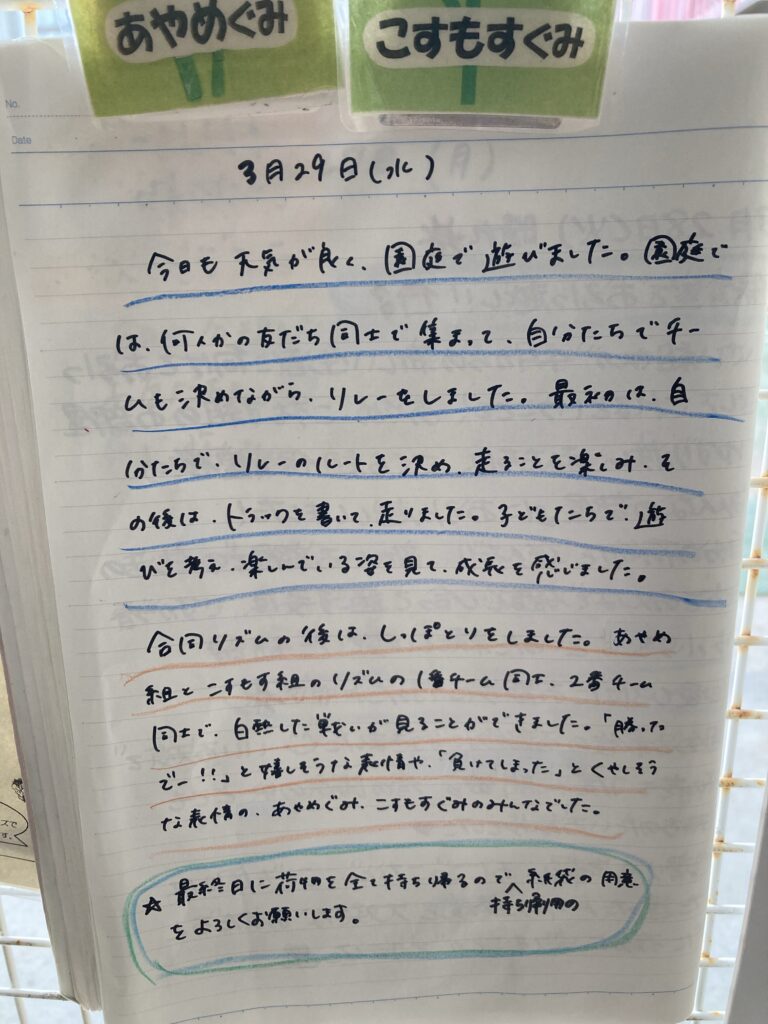 あやめぐみ
こすもすぐみ
No.
Date
3月29日(水)
今日も天気が良く、園庭で遊びました。園庭で
は、何人かの友だち同士で集まって、自分たちでチー
ムも決めながら、リレーをしました。最初は、自
分たちで、リレーのルートを決め、走ることを楽しみ、そ
の後は、トラックを書いて、走りました。子どもたちで、遊
びを考え、楽しんでいる姿を見て、成長を感じました。
合同リズムの後は、しっぽとりをしました。あやめ
組とこすもす組のリズムの1番チーム同士、2番チーム
同士で、白熱した戦いが見ることができました。「勝った
でー!!」と嬉しそうな表情や、「負けてしまった」とくやしそう
な表情の、あやめぐみ、こすもすぐみのみんなでした。
☆最終日に荷物を全て持ち帰るので、紙袋の用意
持ち帰り用の
をよろしくお願いします。